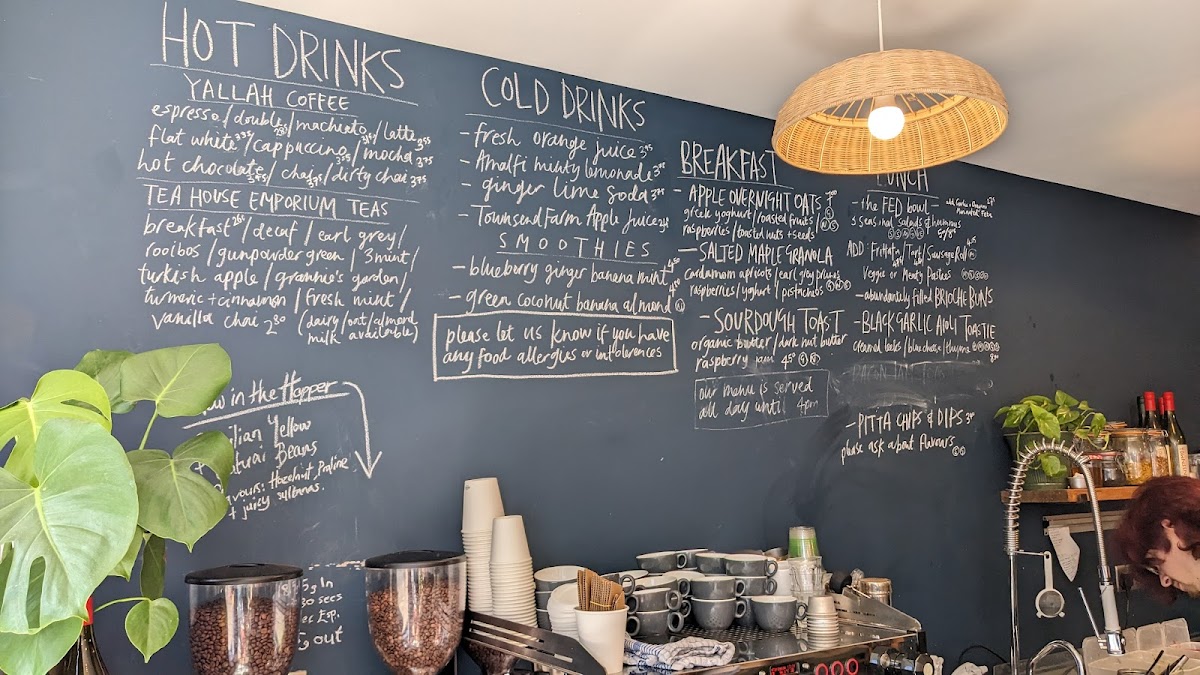 HOT DRINKS
YALLAH COFFEE
espresso/double/machiato/latte
flat white/cappuccino/mocha
hot chocolate/chai/dirty chai
TEA HOUSE EMPORIUM TEAS
breakfast/decaf/earl grey/
rooibos/gunpowder green/3mint/
turkish apple/grannie's garden/
turmeric + cinnamon/fresh mint/
vanilla chai 2.80 (dairy/oat/almond
milk available)
in the Hopper
Yellow
Beans
Hazelnut, Praline
+ juicy sultanas.
COLD DRINKS
- fresh orange juice
- Amalfi minty lemonade
- ginger lime soda
- Townsend Farm Apple Juice
SMOOTHIES
- blueberry ginger banana mint
- green coconut banana almond
please let us know if you have
any food allergies or intolerences
BREAKFAST
- APPLE OVERNIGHT OATS
greek yoghurt/toasted fruits/
raspberries/toasted nuts + seeds
- SALTED MAPLE GRANOLA
cardamom apricots/earl grey prunes
raspberries/yoghurt/pistachios
- SOURDOUGH TOAST
organic butter/dark nut butter
raspberry jam
our menu is served
all day until 4pm
LUNCH
- the FED bowl -
seasonal salads & hummus
ADD: Frittata/Tart/Sausage Roll
Veggie or Meaty Pasties
- abundantly filled BRIOCHE BUNS
- BLACK GARLIC AIOLI TOASTIE
creamed leeks/blue cheese/thyme
- PITTA CHIPS & DIPS
please ask about flavours
5g In
secs
Esp.
out